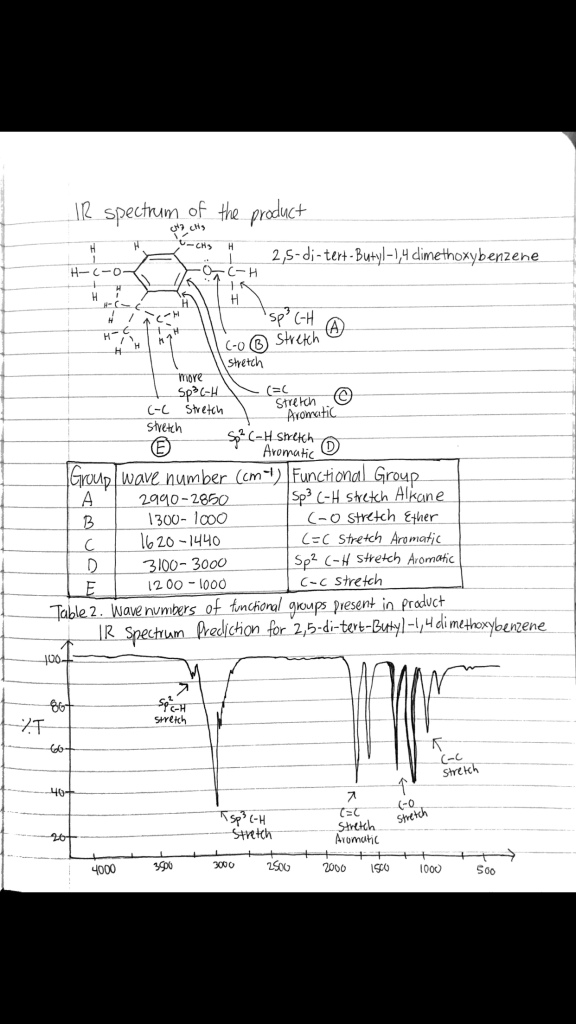 IR spectrum of the product
CH3 CH3
C-CH3
2,5-di-tert-Butyl-1,4 dimethoxybenzene
H H H
H-C-O- -O-C-H
H H H
sp3 C-H Stretch A
C-O B Stretch
more sp3 C-H Stretch
C=C Stretch Aromatic C
C-C Stretch E
Sp2 C-H stretch Aromatic D
Group wave number (cm-1) Functional Group
A 2990-2850 Sp3 C-H stretch Alkane
B 1300-1000 C-O stretch Ether
C 1620-1440 C=C stretch Aromatic
D 3100-3000 Sp2 C-H stretch Aromatic
E 1200-1000 C-C stretch
Table 2. Wavenumbers of functional groups present in product
IR Spectrum Prediction for 2,5-di-tert-Butyl-1,4 dimethoxybenzene
100
80
%T
60
40
20
Sp2 C-H stretch
Sp3 C-H Stretch
C=C Stretch Aromatic
C-O stretch
C-C stretch
4000 3500 3000 2500 2000 1500 1000 500